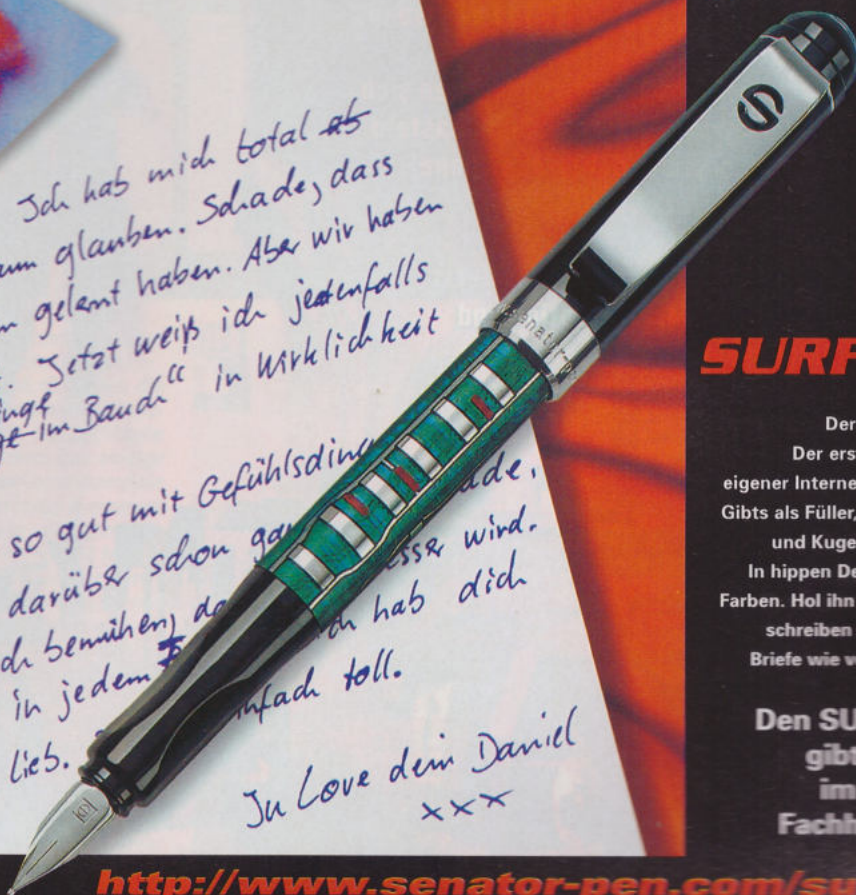 Ich hab mich total ab
glauben. Schade, dass
gelernt haben. Aber wir haben
Jetzt weiß ich jedenfalls
im Bauch" in Wirklichkeit
so gut mit Gefühlsding
darüber schon
esser wird.
bemühen,
hab dich
in jedem
toll.
lieb.
In Love dein Daniel
xxx
S
senator-p
SURF
Der
Der erst
eigener Interne
Gibts als Füller,
und Kuge
In hippen De
Farben. Hol ihn
schreiben
Briefe wie v
Den SU
gibt
im
Fachh
http://www.senator-pen.com/su